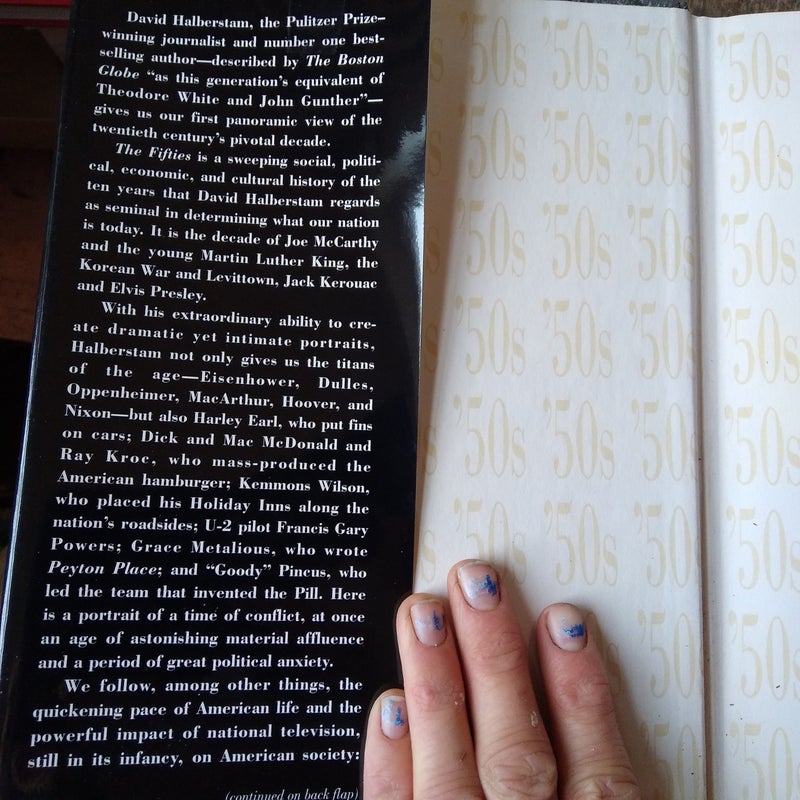 David Halberstam, the Pulitzer Prize–
winning journalist and number one best-
selling author—described by The Boston
Globe “as this generation’s equivalent of
Theodore White and John Gunther”—
gives us our first panoramic view of the
twentieth century’s pivotal decade.
The Fifties is a sweeping social, politi-
cal, economic, and cultural history of the
ten years that David Halberstam regards
as seminal in determining what our nation
is today. It is the decade of Joe McCarthy
and the young Martin Luther King, the
Korean War and Levittown, Jack Kerouac
and Elvis Presley.
With his extraordinary ability to cre-
ate dramatic yet intimate portraits,
Halberstam not only gives us the titans
of the age—Eisenhower, Dulles,
Oppenheimer, MacArthur, Hoover, and
Nixon—but also Harley Earl, who put fins
on cars; Dick and Mac McDonald and
Ray Kroc, who mass-produced the
American hamburger; Kemmons Wilson,
who placed his Holiday Inns along the
nation’s roadsides; U-2 pilot Francis Gary
Powers; Grace Metalious, who wrote
Peyton Place; and “Goody” Pincus, who
led the team that invented the Pill. Here
is a portrait of a time of conflict, at once
an age of astonishing material affluence
and a period of great political anxiety.
We follow, among other things, the
quickening pace of American life and the
powerful impact of national television,
still in its infancy, on American society:
(continued on back flap)
’50s ’50s ’50s ’50s
’50s ’50s ’50s ’50s
’50s ’50s ’50s ’50s
’50s ’50s ’50s ’50s
’50s ’50s ’50s ’50s
’50s ’50s ’50s ’50s
’50s ’50s
’50s ’50s